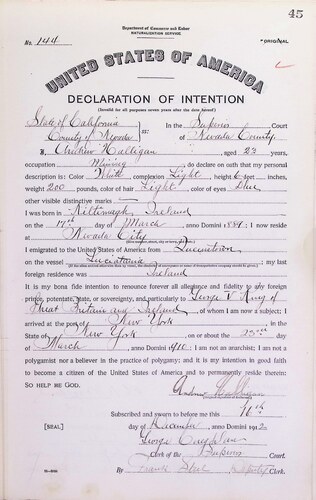 45
Department of Commerce and Labor
NATURALIZATION SERVICE
No. 144 ORIGINAL
UNITED STATES OF AMERICA
DECLARATION OF INTENTION
(Invalid for all purposes seven years after the date hereof)
State of California In the Superior Court
County of Nevada ss: of Nevada County
I, Andrew Halligan aged 23 years,
occupation Mining, do declare on oath that my personal
description is: Color White, complexion Light, height 6 feet inches,
weight 200 pounds, color of hair Light, color of eyes Blue
other visible distinctive marks
I was born in Kiltimagh, Ireland
on the 17th day of March, anno Domini 1889; I now reside
at Nevada City
I emigrated to the United States of America from
on the vessel; my last
foreign residence was Ireland
It is my bona fide intention to renounce forever all allegiance and fidelity to any foreign
prince, potentate, state, or sovereignty, and particularly to George V King of
Great Britain and Ireland, of whom I am now a subject; I
arrived at the port of New York, in the
State of New York on or about the 22nd day
of March, anno Domini 1910; I am not an anarchist; I am not a
polygamist nor a believer in the practice of polygamy; and it is my intention in good faith
to become a citizen of the United States of America and to permanently reside therein:
SO HELP ME GOD.
Andrew Halligan
Subscribed and sworn to before me this
[SEAL] day of December, anno Domini 1912
George
Clerk of the Superior Court.
By Deputy Clerk.